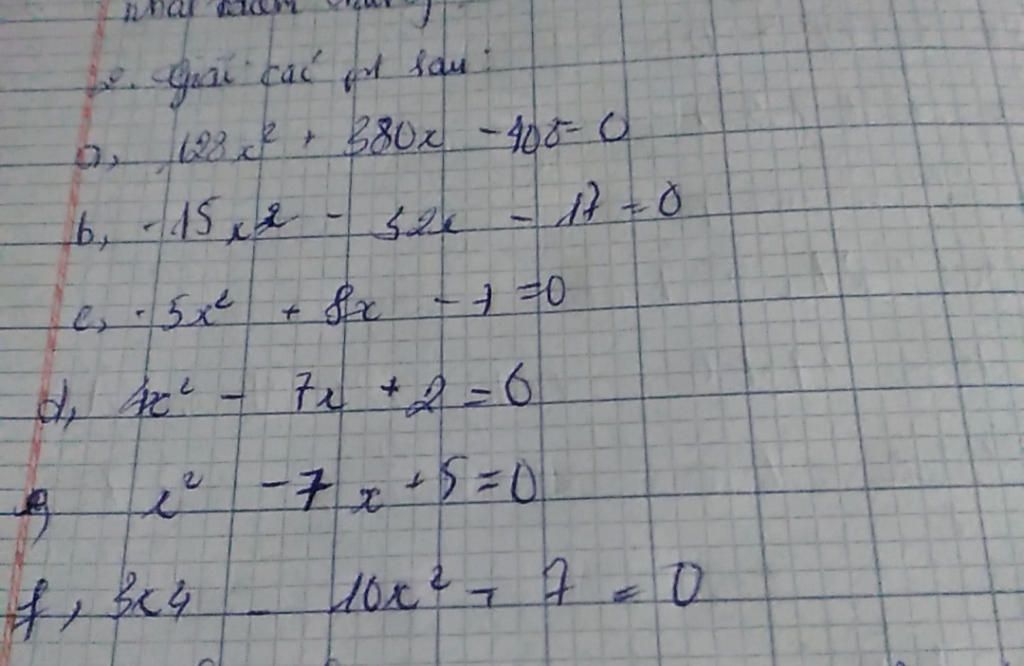 2. Giải các pt sau:
a, 128x² + 380x - 408 = 0
b, -15x² - 32x - 17 = 0
c, -5x² + 8x - 1 = 0
d, 4x² - 7x + 2 = 0
e, x² - 7x + 5 = 0
f, 3x4 - 10x² - 7 = 0